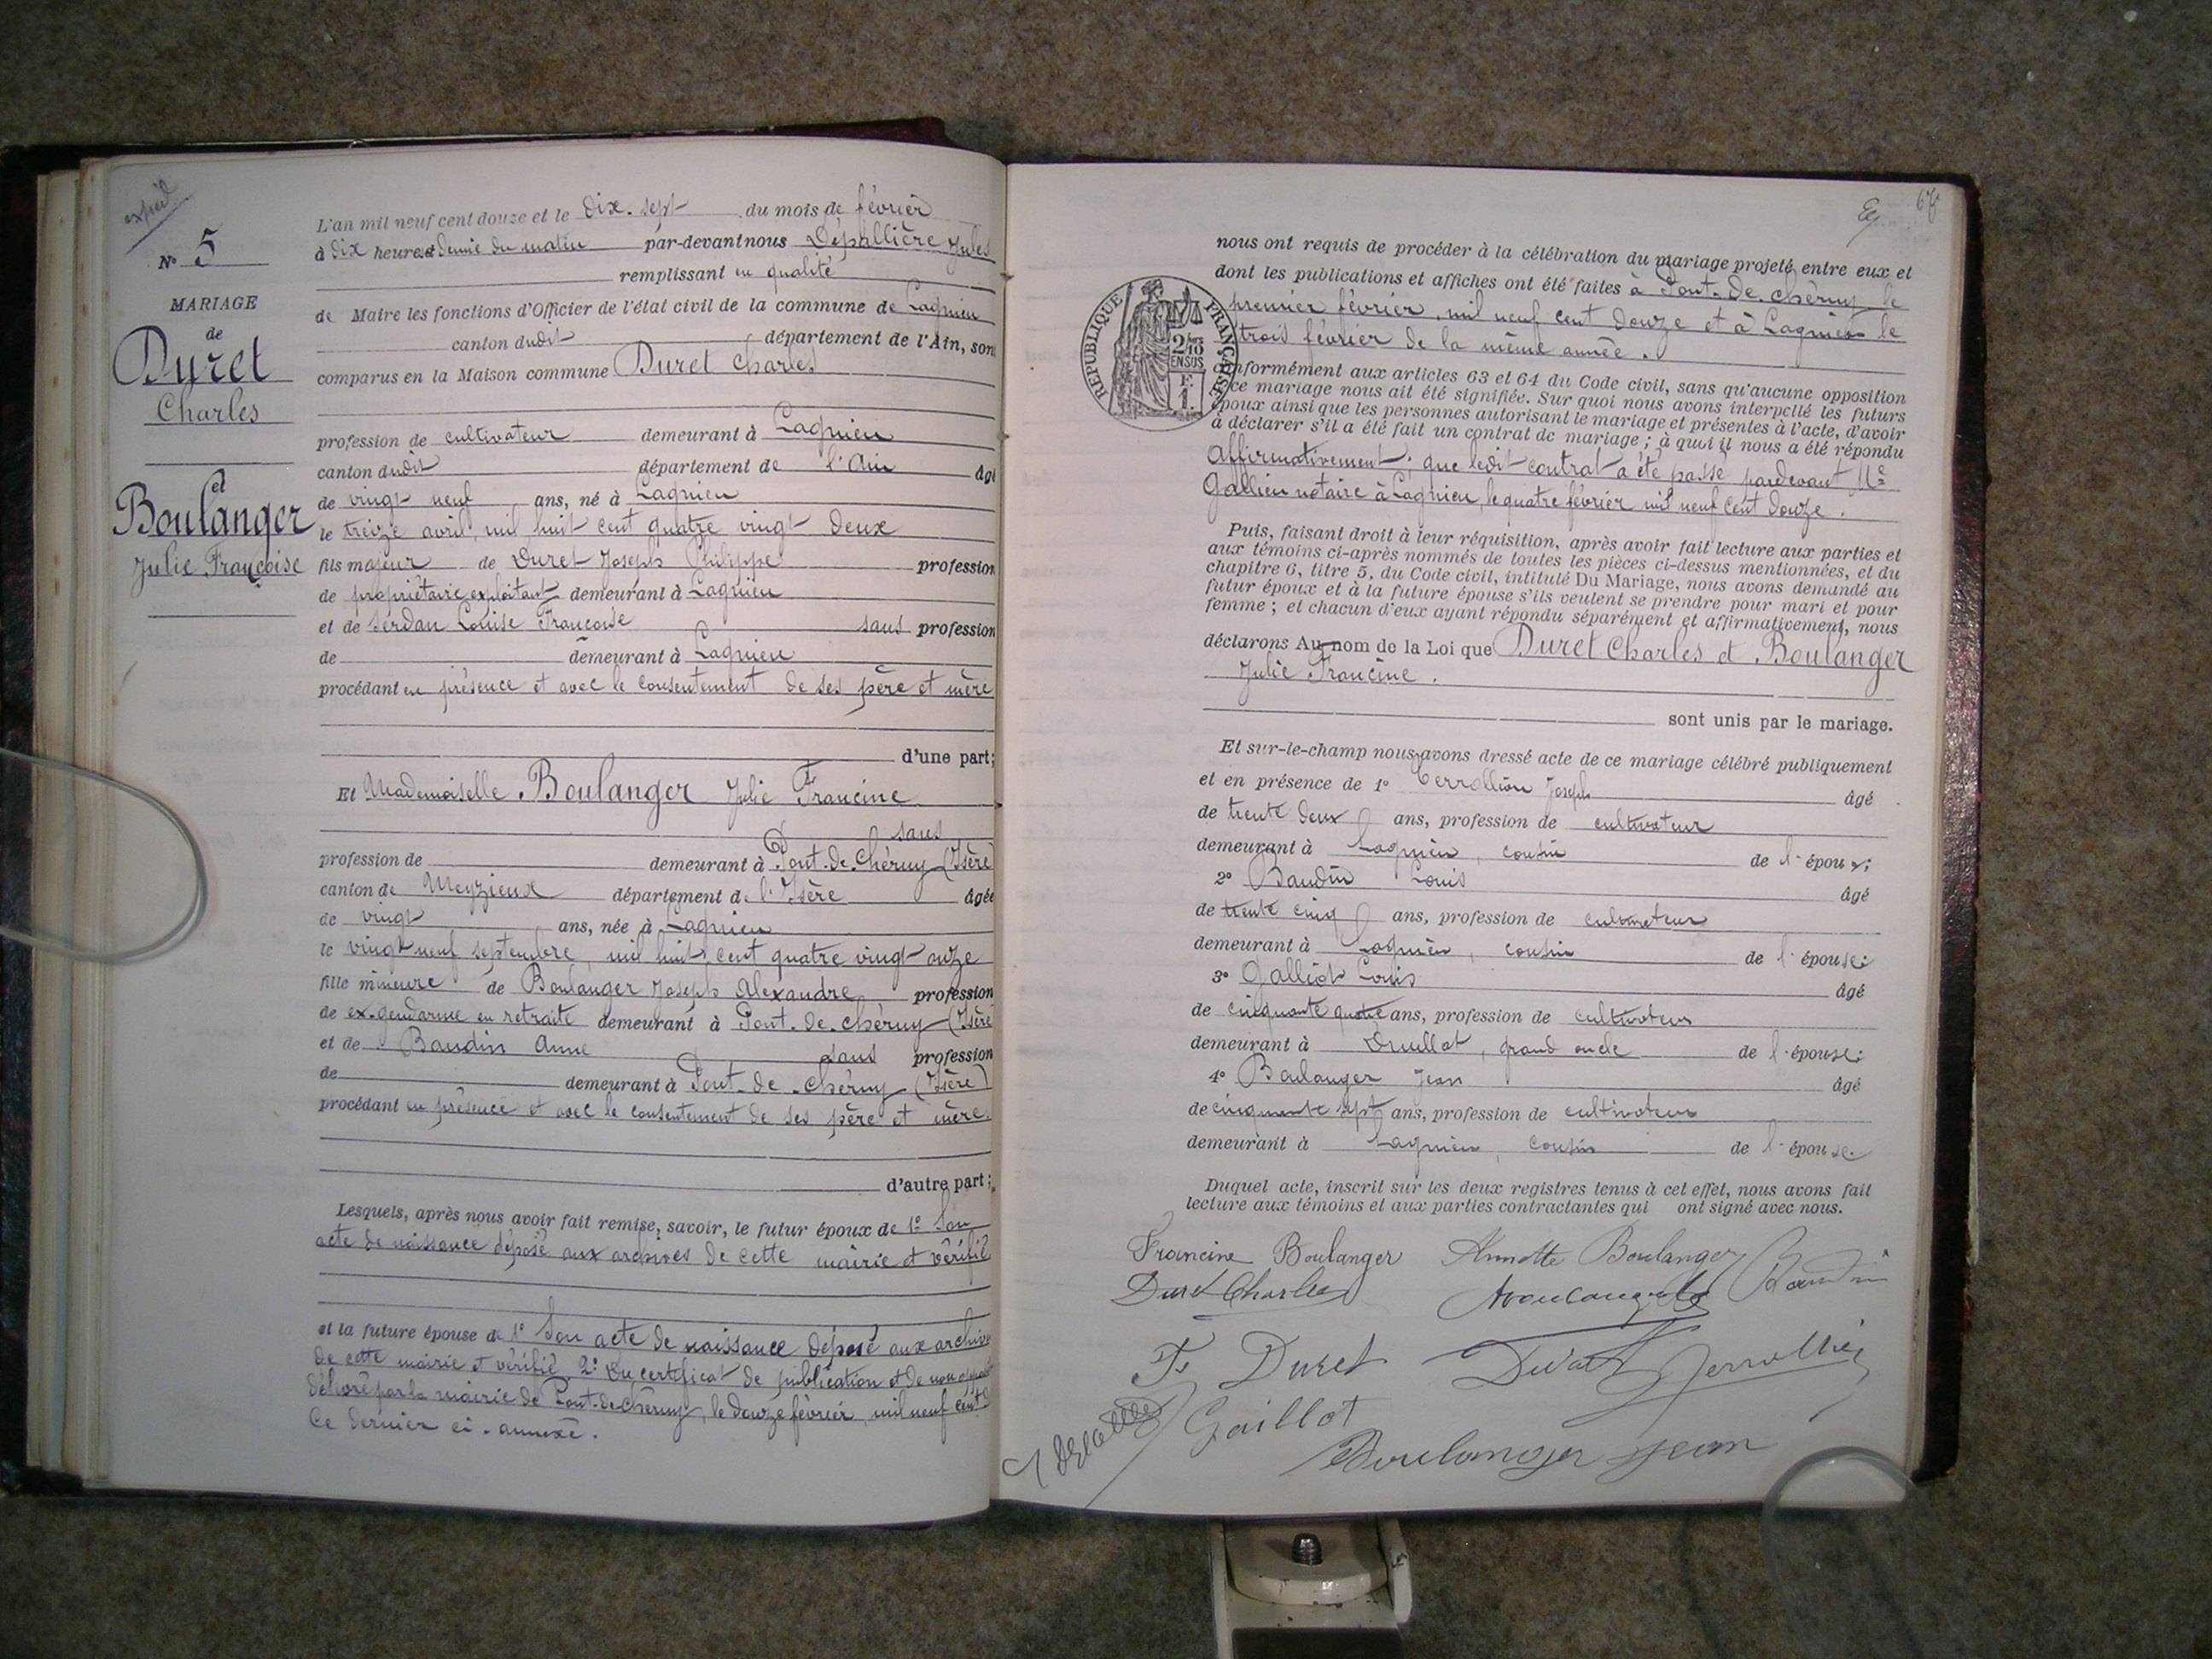 expéd
N° 5
MARIAGE
de
Duret
Charles
et
Boulanger
Julie Françoise
L'an mil neuf cent douze et le dix-sept du mois de février
à dix heures et demie du matin par-devant nous Dépallière Jules
remplissant en qualité
de Maire les fonctions d'Officier de l'état civil de la commune de Lagnieu
canton dudit département de l'Ain, sont
comparus en la Maison commune Duret Charles
profession de cultivateur demeurant à Lagnieu
canton dudit département de l'Ain âgé
de vingt neuf ans, né à Lagnieu
le treize avril, mil huit cent quatre vingt deux
fils majeur de Duret Joseph Philippe profession
de propriétaire exploitant demeurant à Lagnieu
et de Serdan Louise Françoise sans profession
de demeurant à Lagnieu
procédant en présence et avec le consentement de ses père et mère
d'une part;
Et Mademoiselle Boulanger Julie Francine
sans
profession de demeurant à Pont-de-Chéruy (Isère)
canton de Meyzieux département de l'Isère âgée
de vingt ans, née à Lagnieu
le vingt neuf septembre, mil huit cent quatre vingt onze
fille mineure de Boulanger Joseph Alexandre profession
de ex-gendarme en retraite demeurant à Pont-de-Chéruy (Isère
et de Baudin Anne sans profession
de demeurant à Pont-de-Chéruy (Isère)
procédant en présence et avec le consentement de ses père et mère.
d'autre part;
Lesquels, après nous avoir fait remise, savoir, le futur époux de 1° Son
acte de naissance déposé aux archives de cette mairie et vérifié
et la future épouse de 1° Son acte de naissance déposé aux archives
de cette mairie et vérifié 2° Du certificat de publication et de non oppos
délivré par la mairie de Pont-de-Chéruy, le douze février, mil neuf cent
Ce dernier ci-annexé.
67
nous ont requis de procéder à la célébration du mariage projeté entre eux et
dont les publications et affiches ont été faites à Pont-de-Chéruy le
premier février, mil neuf cent douze et à Lagnieu le
trois février de la même année.
RÉPUBLIQUE FRANÇAISE
2/10 EN SUS
F. 1.
conformément aux articles 63 et 64 du Code civil, sans qu'aucune opposition
à ce mariage nous ait été signifiée. Sur quoi nous avons interpellé les futurs
époux ainsi que les personnes autorisant le mariage et présentes à l'acte, d'avoir
à déclarer s'il a été fait un contrat de mariage; à quoi il nous a été répondu
Affirmativement; que ledit contrat a été passé pardevant Me
Gallien notaire à Lagnieu, le quatre février mil neuf cent douze.
Puis, faisant droit à leur réquisition, après avoir fait lecture aux parties et
aux témoins ci-après nommés de toutes les pièces ci-dessus mentionnées, et du
chapitre 6, titre 5, du Code civil, intitulé Du Mariage, nous avons demandé au
futur époux et à la future épouse s'ils veulent se prendre pour mari et pour
femme; et chacun d'eux ayant répondu séparément et affirmativement, nous
déclarons Au nom de la Loi que Duret Charles et Boulanger
Julie Francine.
sont unis par le mariage.
Et sur-le-champ nous avons dressé acte de ce mariage célébré publiquement
et en présence de 1° Joseph âgé
de trente deux ans, profession de cultivateur
demeurant à Lagnieu, cousin de l'époux;
2° Baudin Louis âgé
de trente cinq ans, profession de cultivateur
demeurant à Lagnieu, cousin de l'épouse;
3° Galliot Louis âgé
de cinquante quatre ans, profession de cultivateur
demeurant à Druillat, grand oncle de l'épouse;
4° Boulanger Jean âgé
de cinquante sept ans, profession de cultivateur
demeurant à Lagnieu, cousin de l'épouse.
Duquel acte, inscrit sur les deux registres tenus à cet effet, nous avons fait
lecture aux témoins et aux parties contractantes qui ont signé avec nous.
Francine Boulanger Annette Boulanger Baudin
Duret Charles
Duret
Gaillot
Boulanger Jean